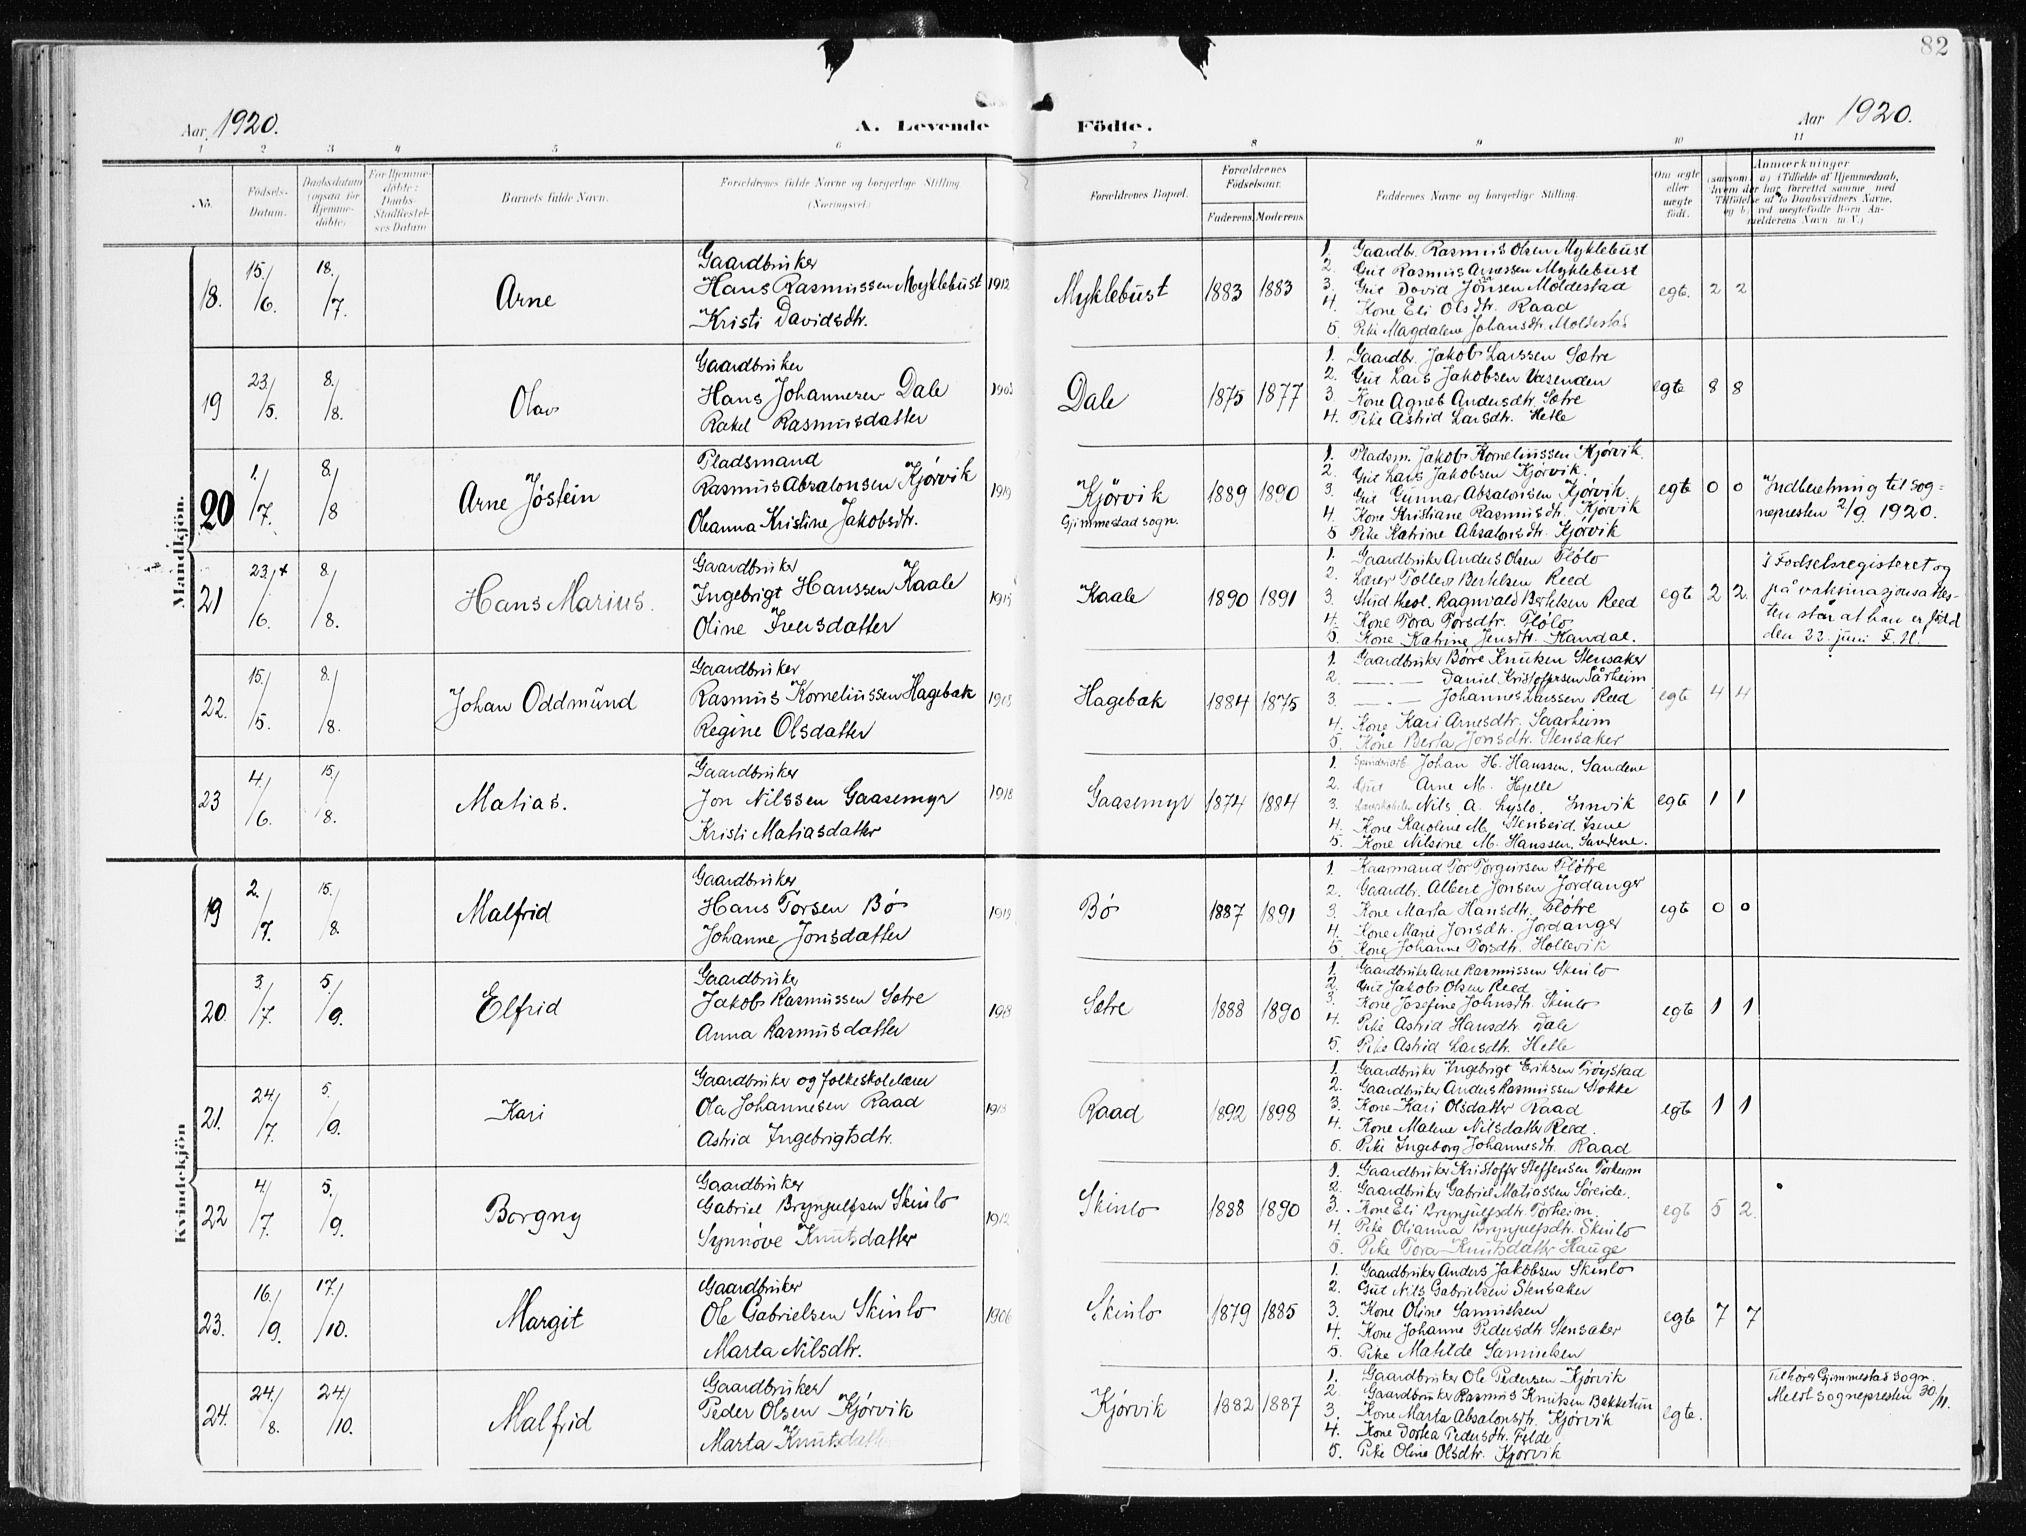 82
Aar 1920.
A. Levende Födte.
Aar 1920.
1 2 3 4 5 6 7 8 9 10 11
No.
Födsels-Datum.
Daabsdatum (ogsaa for Hjemme-döbte)
For Hjemme-döbte: Daabs-Stadfæstel-ses Datum
Barnets fulde Navn.
Forældrenes fulde Navne og borgerlige Stilling. (Næringsvei.)
Forældrenes Bopæl.
Forældrenes Födselsaar.
Faderens. Moderens.
Faddernes Navne og borgerlige Stilling.
Om ægte eller uægte födt.
Anmærkninger
Mandkjön.
18. 15./6. 18./7. Arne
Gaardbruker
Hans Rasmussen Myklebust 1912
Kristi Davidsdtr.
Myklebust 1883 1883
1. Gaardbr. Rasmus Olsen Myklebust
2. Gut Rasmus Arnessen Myklebust
3. Gut David Jonsen Moldestad
4. Kone Eli Olsdtr. Raad
5. Pike Magdalene Johansdtr Moldestad
egte. 2 2
19 23./5. 8./8. Olav
Gaardbruker
Hans Johannesen Dale 1903
Rakel Rasmusdatter
Dale 1875 1877
1. Gaardbr. Jakob Larssen Sætre
2. Gut Lars Jakobsen Vasenden
3. Kone Agnes Andersdtr. Sætre
4. Pike Astrid Larsdtr. Hetle
egte 8 8
20 1./7. 8./8 Arne Jøstein
Pladsmand
Rasmus Absalonsen Kjørvik 1919
Oleanna Kristine Jakobsdtr.
Kjörvik
Gjimmestad sogn.
1889 1890
1. Pladsm. Jakob Korneliussen Kjørvik.
2. Gut Lars Jakobsen Kjørvik.
3. Gut Gunnar Absalonsen Kjørvik.
4. Kone Kristiane Rasmusdtr. Kjørvik
5 Pike Katrine Absalonsdtr. Kjørvik
egte 0 0
Indberetning til sog-
nepresten 2/9 1920.
21 23./6. + 8./8. Hans Marius.
Gaardbruker
Ingebrigt Hanssen Kaale 1915
Oline Iversdatter
Kaale 1890 1891
1. Gaardbruker Anders Olsen Fløtø
2. Lærer Tollev Bertelsen Reed
3. Stud theol. Ragnvald Bertelsen Reed
4. Kone Tora Torsdtr. Fløtø
5. Kone Katrine Jensdtr. Kandal.
egte 2 2.
I Fødselsregisteret og
på vaksinasjonsattes-
ten står at han er født
den 22. juni F. H.
22. 15./5. 8./8. Johan Oddmund
Gaardbruker
Rasmus Korneliussen Hagebak
Regine Olsdatter
Hagebak 1884 1875
1. Gaardbruker Børre Knutsen Stensaker
2. —.— Daniel Kristoffersen Sårheim
3. —.— Johannes Larssen Reed
4. Kone Kari Arnesdtr. Saarheim
5. Kone Berta Jonsdtr. Stensaker
egte 4 4
23 4./6. 15./8. Matias.
Gaardbruker
Jon Nilssen Gaasemyr 1918
Kristi Matiasdatter
Gaasemyr 1874 1884
1. Johan H. Hanssen. Sandene
2. Gut Arne M. Hjelle
3. Nils A. Lyslo. Innvik
4. Kone Karoline M.
5. Kone Nilsine M. Hanssen. Sandene.
egte 1 1
Kvindekjön
19 2./7. 15./8. Malfrid
Gaardbruker
Hans Torsen Bø
Johanne Jonsdatter
Bø 1887 1891
1. Kaarmand Tor Torgersen Fløtre
2. Gaardbr. Albert Jonsen Jordanger
3. Kone Marta Hansdtr. Fløtre
4. Kone Marie Jonsdtr. Jordanger
5. Kone Johanne Torsdtr. Hollevik
egte 0 0
20 3./7. 5./9. Elfrid
Gaardbruker
Jakob Rasmussen Sætre
Anna Rasmusdatter
Sætre 1888 1890
1. Gaardbruker Arne Rasmussen Skinlo
2. Gut Jakob Olsen Reed
3. Kone Josefine Johnsdtr. Skinlo
4. Pike Astrid Hansdtr. Dale
5. Pike Astrid Larsdtr. Hetle
egte 1 1
21. 24./7. 5./9. Kari
Gaardbruker og folkeskolelærer
Ola Johannesen Raad
Astrid Ingebrigtsdtr.
Raad 1892 1898
1. Gaardbruker Ingebrigt Eriksen
2. Gaardbruker Anders Rasmussen Stokke
3. Kone Kari Olsdatter Raad
4. Kone Malene Nilsdatter Reed.
5. Pike Ingeborg Johannesdtr. Raad
egte 1 1
22 4./7. 5./9. Borgny
Gaardbruker
Gabriel Brynjulfsen Skinlo 1912
Synnøve Knutsdatter
Skinlo 1888 1890
1. Gaardbruker Kristoffer Steffensen Torheim
2. Gaardbruker Gabriel Matiassen Søreide.
3. Kone Eli Brynjulfsdtr. Torheim.
4. Pike Olianna Brynjulfsdtr. Skinlo
5. Pike Tora Knutsdatter Hauge
egte 5 2.
23. 16./9. 17./10. Margit
Gaardbruker
Ole Gabrielsen Skinlo 1906
Marta Nilsdtr.
Skinlo 1879 1885
1. Gaardbruker Anders Jakobsen Skinlo
2. Gut Nils Gabrielsen Stensaker
3. Kone Oline Samuelsen
4. Kone Johanne Pedersdtr Stensaker
5. Pike Matilde Samuelsen
egte 7 7
24. 24./8. 24./10. Malfrid
Gaardbruker
Peder Olsen Kjørvik
Marta Knutsdatter
Kjørvik 1882 1887
1. Gaardbruker Ole Pedersen Kjørvik
2. Gaardbruker Rasmus Knutsen Bekketun
3. Kone Marta Absalonsdtr. Kjørvik
4. Kone Dortea Pedersdtr. Felde
5. Pike Oline Olsdtr. Kjørvik
egte.
Tilhører Gjimmestad sogn.
Meldt sognepresten 30/11.